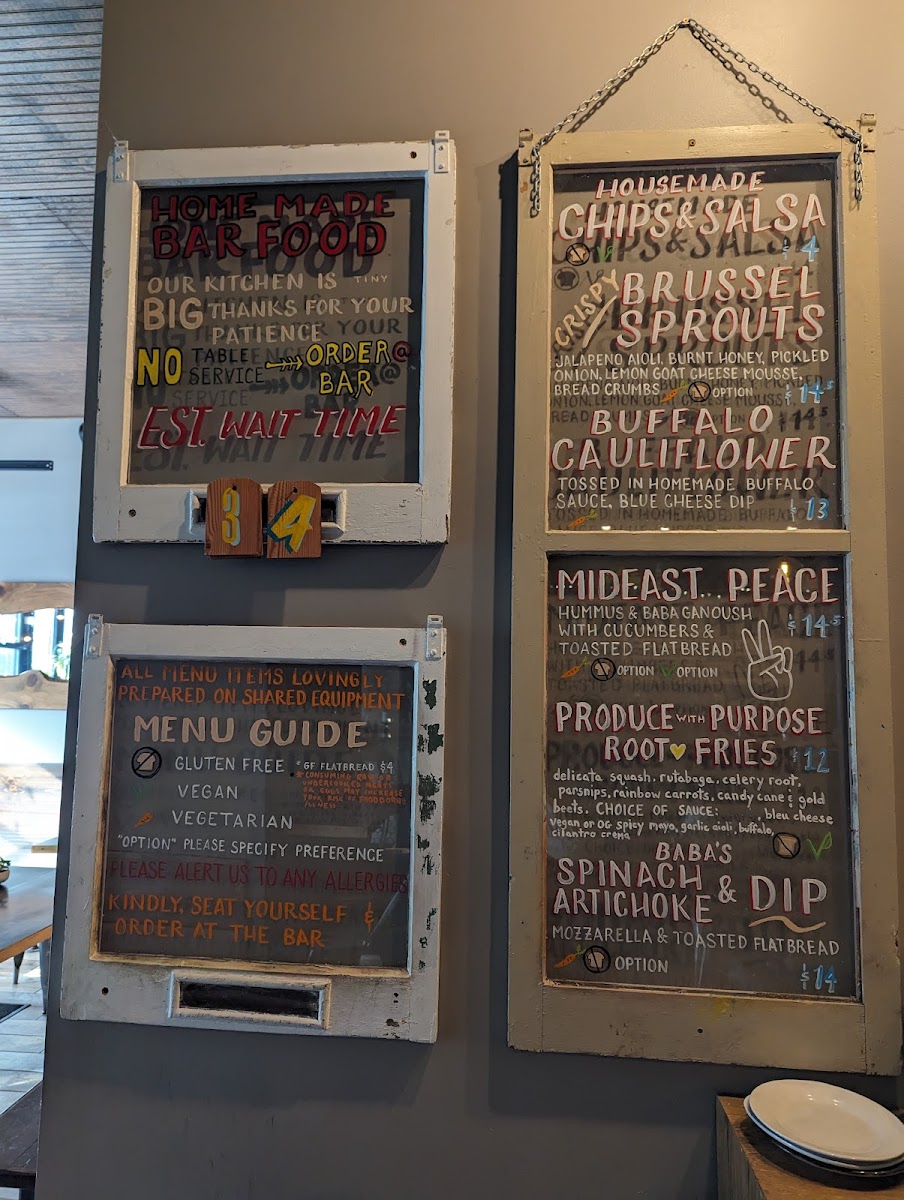 HOME MADE
BAR FOOD
OUR KITCHEN IS TINY
BIG THANKS FOR YOUR
PATIENCE
NO TABLE SERVICE ORDER@
BAR
EST. WAIT TIME
34
ALL MENU ITEMS LOVINGLY
PREPARED ON SHARED EQUIPMENT
MENU GUIDE
GLUTEN FREE *GF FLATBREAD $4
VEGAN
VEGETARIAN
* CONSUMING RAW OR
UNDERCOOKED MEATS
OR EGGS MAY INCREASE
YOUR RISK OF FOODBORNE
ILLNESS
"OPTION" PLEASE SPECIFY PREFERENCE
PLEASE ALERT US TO ANY ALLERGIES
KINDLY, SEAT YOURSELF &
ORDER AT THE BAR
HOUSEMADE
CHIPS & SALSA
$4
CRISPY BRUSSEL
SPROUTS
JALAPENO AIOLI, BURNT HONEY, PICKLED
ONION, LEMON GOAT CHEESE MOUSSE,
BREAD CRUMBS OPTION $14.5
BUFFALO
CAULIFLOWER
TOSSED IN HOMEMADE BUFFALO
SAUCE, BLUE CHEESE DIP $13
MIDEAST.. PEACE
HUMMUS & BABA GANOUSH $14.5
WITH CUCUMBERS &
TOASTED FLATBREAD
OPTION OPTION
PRODUCE WITH PURPOSE
ROOT FRIES $12
delicata squash, rutabaga, celery root,
parsnips, rainbow carrots, candy cane & gold
beets. CHOICE OF SAUCE: bleu cheese
vegan or OG spicy mayo, garlic aioli, buffalo,
cilantro crema
BABA'S
SPINACH & DIP
ARTICHOKE
MOZZARELLA & TOASTED FLATBREAD
OPTION $14